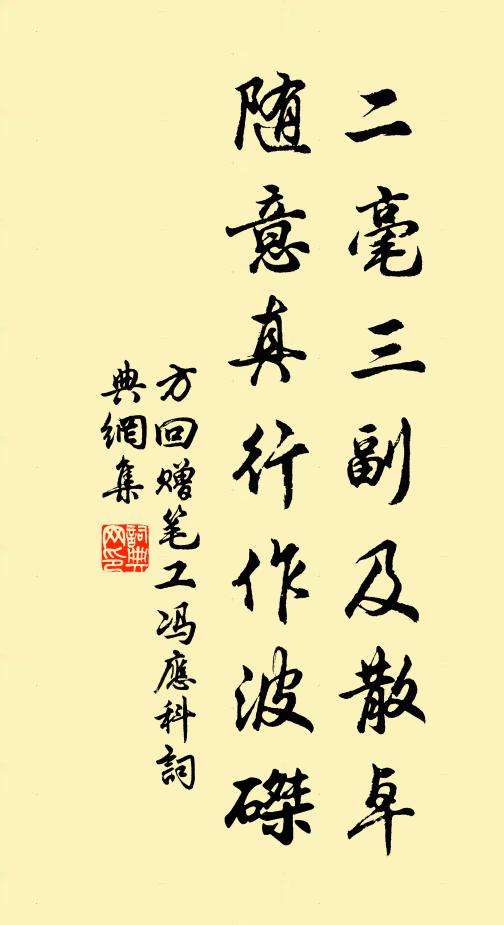 二毫三副及散卓
随意真行作波磔
方回赠笔工冯應科詞
典網集
詞典网印